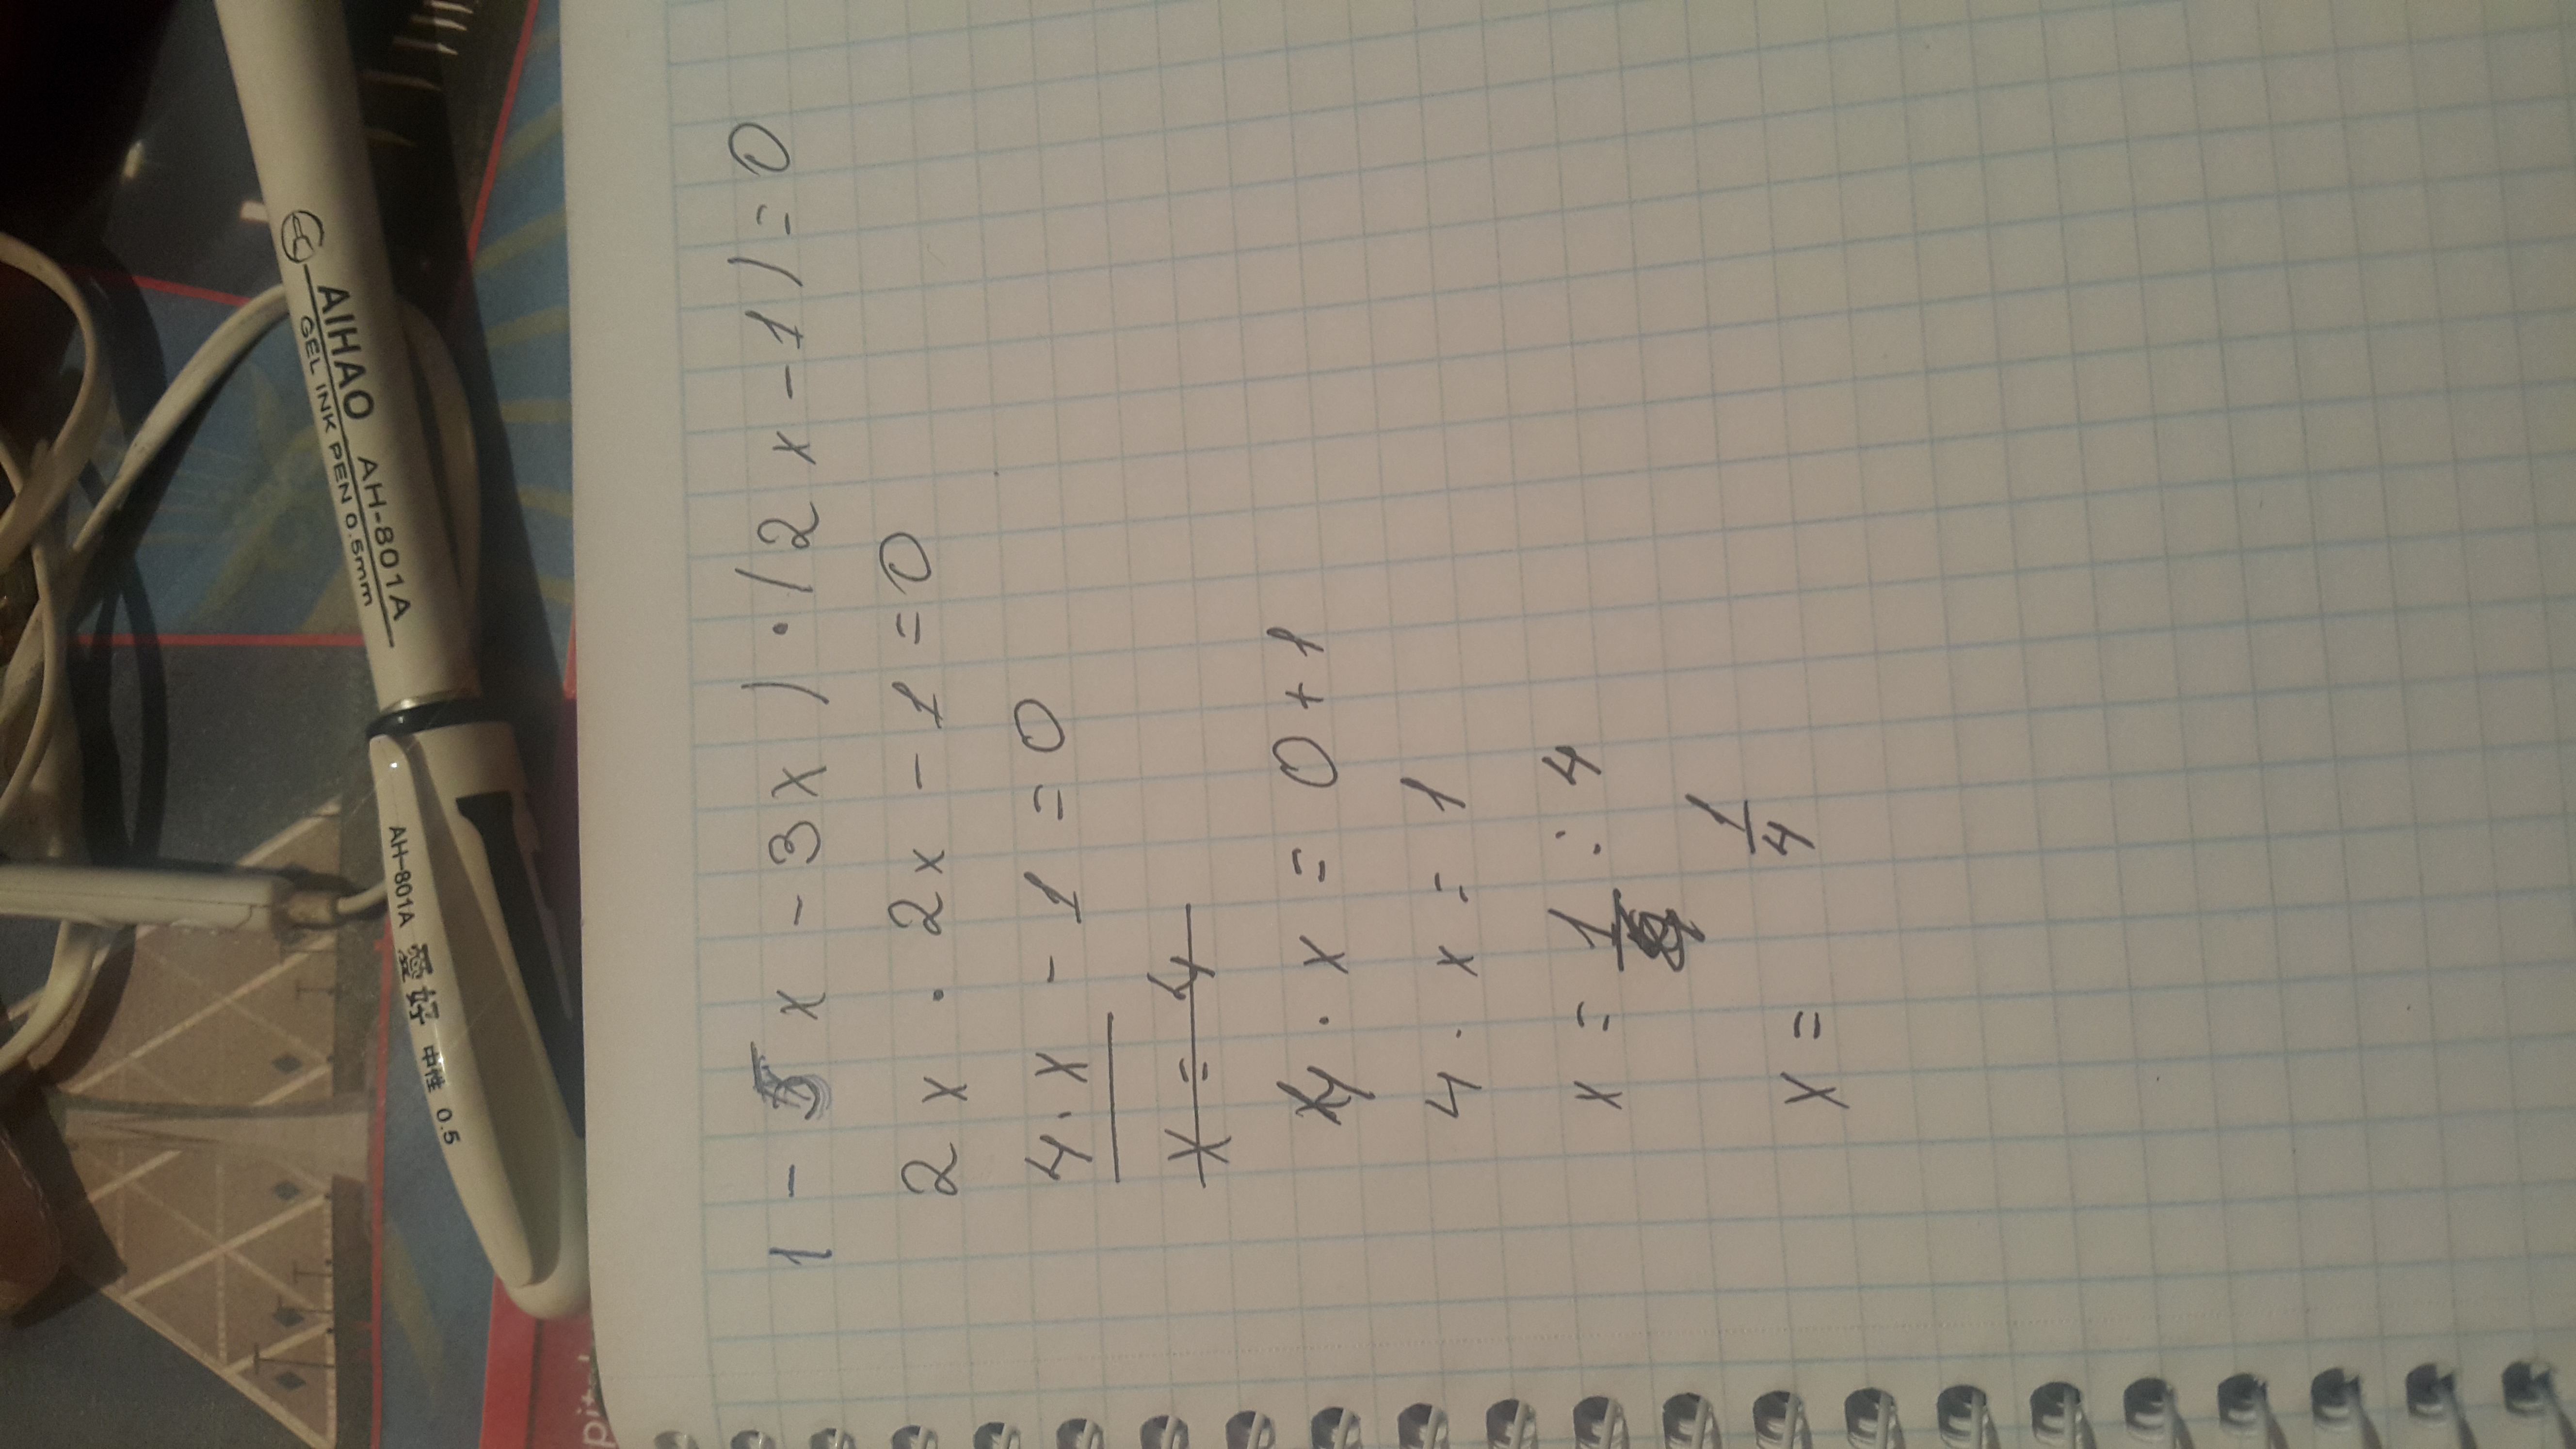 1 - 5x - 3x) · (2x - 1) = 0
2x · 2x - 1 = 0
4 · x - 1 = 0
x = 4
4 · x = 0 + 1
4 · x = 1
x = 1 : 4
x = 1/4
AIHAO AH-801A
GEL INK PEN 0.5mm
AH-801A 爱好 中性 0.5